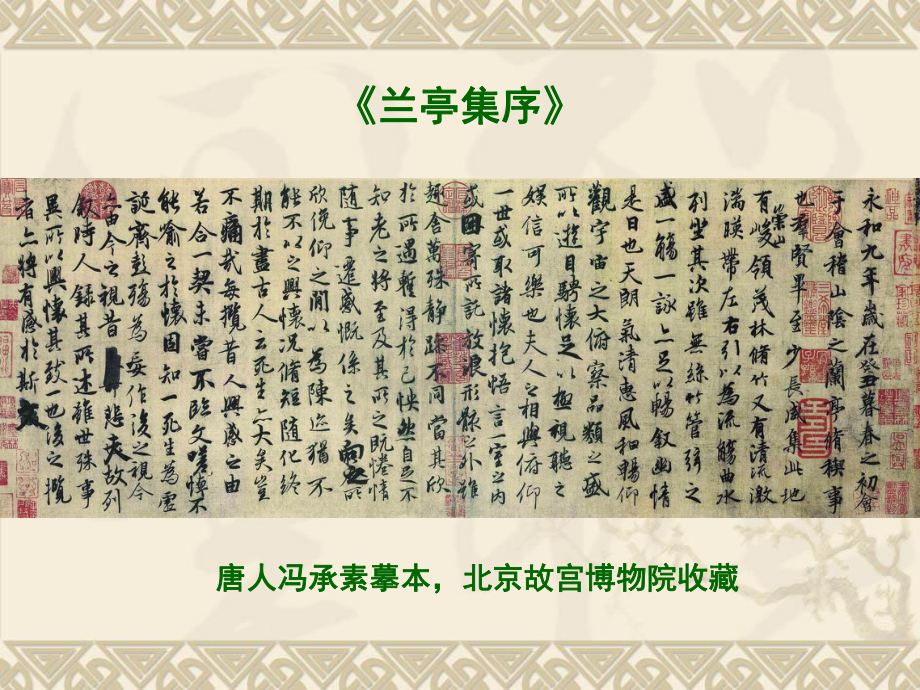 《兰亭集序》
永和九年歲在癸丑暮春之初會
于會稽山陰之蘭亭脩稧事
也羣賢畢至少長咸集此地
有崇山峻領茂林脩竹又有清流激
湍暎帶左右引以為流觴曲水
列坐其次雖無絲竹管弦之
盛一觴一詠亦足以暢敘幽情
是日也天朗氣清惠風和暢仰
觀宇宙之大俯察品類之盛
所以遊目騁懷足以極視聽之
娛信可樂也夫人之相與俯仰
一世或取諸懷抱悟言一室之內
或因寄所託放浪形骸之外雖
趣舍萬殊靜躁不同當其欣
於所遇暫得於己怏然自足不
知老之將至及其所之既惓情
隨事遷感慨係之矣向之所
欣俛仰之閒以為陳迹猶不
能不以之興懷況脩短隨化終
期於盡古人云死生亦大矣豈
不痛哉每攬昔人興感之由
若合一契未嘗不臨文嗟悼不
能喻之於懷固知一死生為虛
誕齊彭殤為妄作後之視今
亦由今之視昔悲夫故列
敘時人錄其所述雖世殊事
異所以興懷其致一也後之攬
者亦將有感於斯文
唐人冯承素摹本，北京故宫博物院收藏